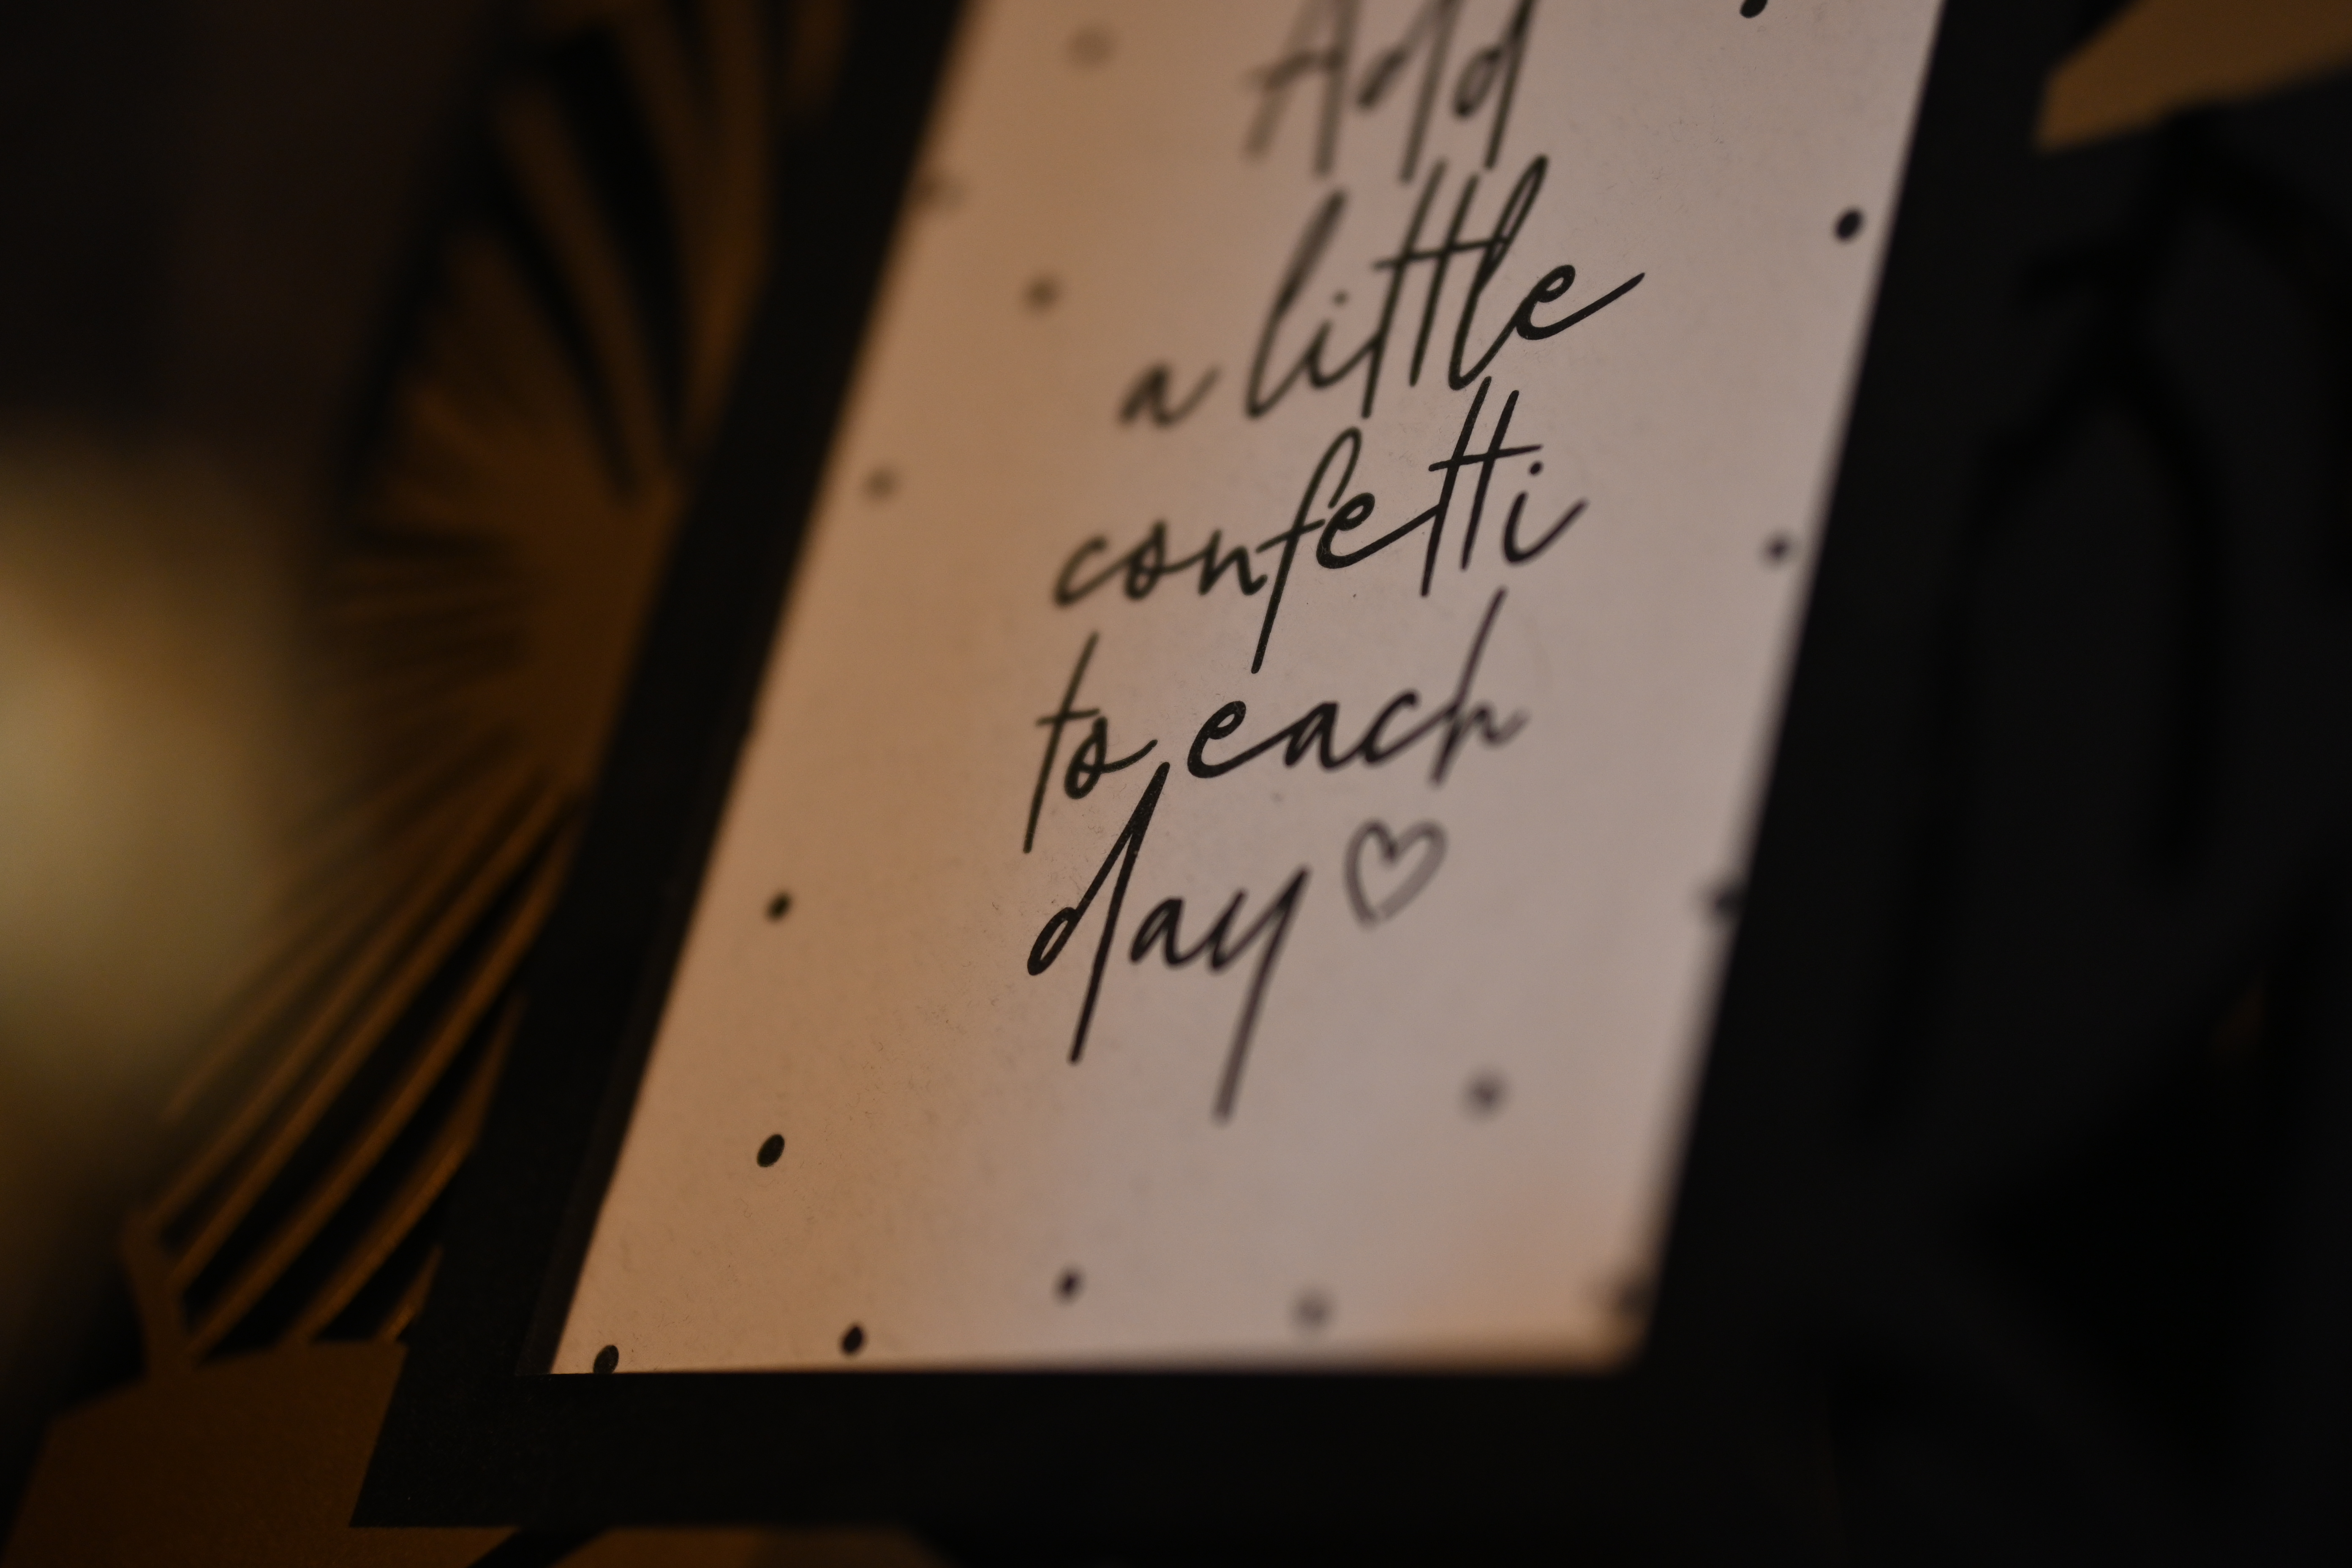 Add
a little
confetti
to each
day ♡